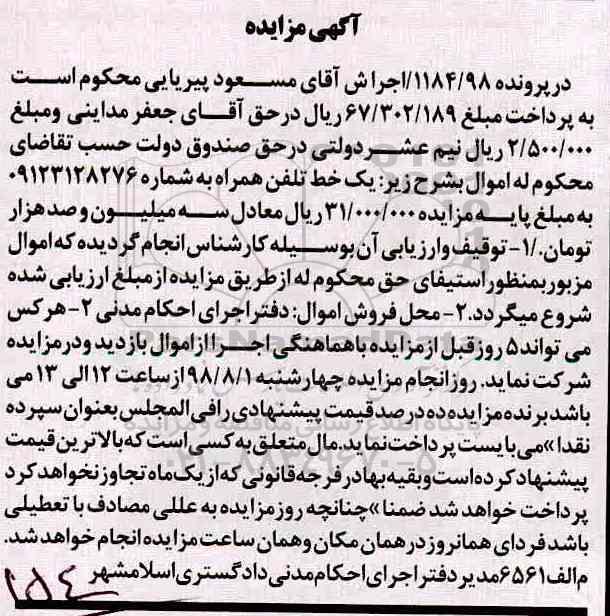 آگهی مزایده
در پرونده ۱۱۸۴/۹۸/اجرا ش آقای مسعود پیریایی محکوم است
به پرداخت مبلغ ۶۷/۳۰۲/۱۸۹ ریال در حق آقای جعفر مداینی و مبلغ
۲/۵۰۰/۰۰۰ ریال نیم عشر دولتی در حق صندوق دولت حسب تقاضای
محکوم له اموال بشرح زیر: یک خط تلفن همراه به شماره ۰۹۱۲۳۱۲۸۲۷۶
به مبلغ پایه مزایده ۳۱/۰۰۰/۰۰۰ ریال معادل سه میلیون و صد هزار
تومان./۱- توقیف وارزیابی آن بوسیله کارشناس انجام گردیده که اموال
مزبور بمنظور استیفای حق محکوم له از طریق مزایده از مبلغ ارزیابی شده
شروع میگردد.۲- محل فروش اموال: دفتر اجرای احکام مدنی ۲- هر کس
می تواند ۵ روز قبل از مزایده با هماهنگی اجرا از اموال بازدید و در مزایده
شرکت نماید. روز انجام مزایده چهارشنبه ۹۸/۸/۱ از ساعت ۱۲ الی ۱۳ می
باشد برنده مزایده ده درصد قیمت پیشنهادی را فی المجلس بعنوان سپرده
نقدا» می بایست پرداخت نماید. مال متعلق به کسی است که بالاترین قیمت
پیشنهاد کرده است و بقیه بها در فرجه قانونی که از یک ماه تجاوز نخواهد کرد
پرداخت خواهد شد ضمنا» چنانچه روز مزایده به عللی مصادف با تعطیلی
باشد فردای همانروز در همان مکان و همان ساعت مزایده انجام خواهد شد.
م الف ۶۵۶۱ مدیر دفتر اجرای احکام مدنی دادگستری اسلامشهر